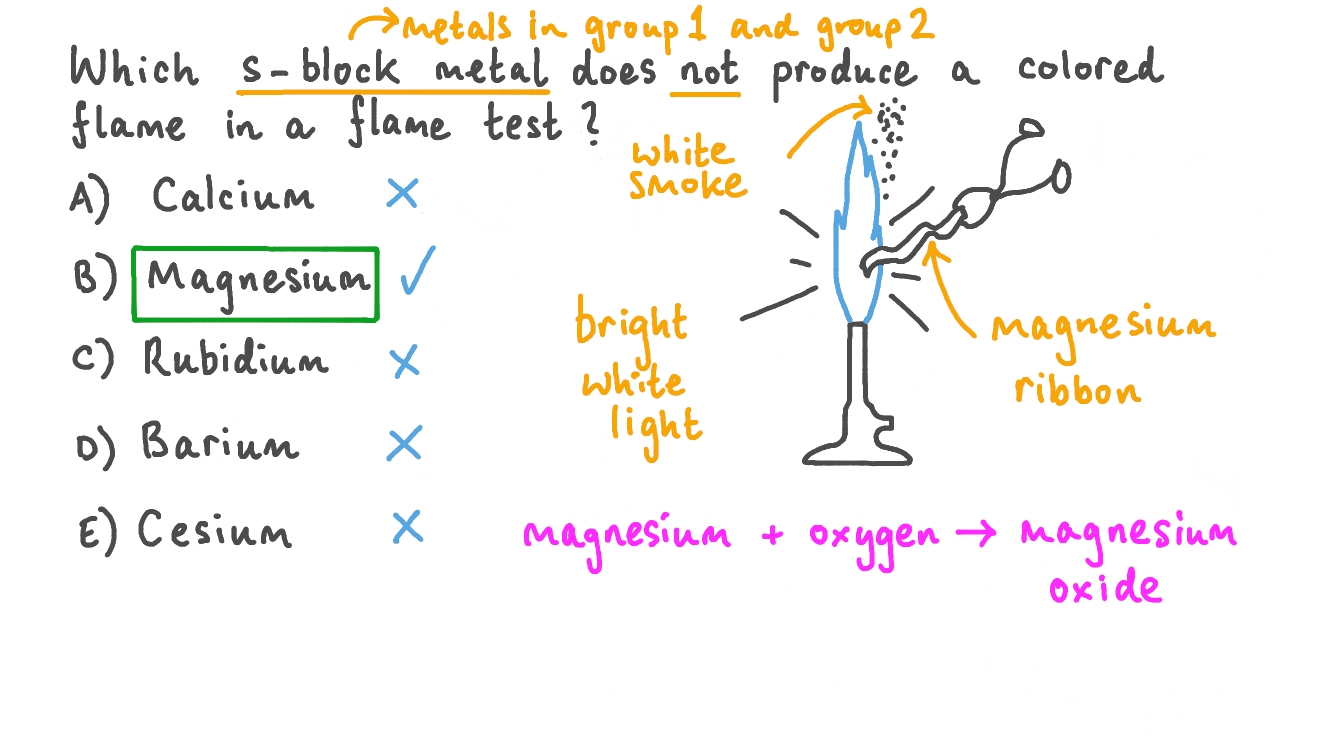 metals in group 1 and group 2
Which s-block metal does not produce a colored
flame in a flame test?
A) Calcium ×
B) Magnesium ✓
C) Rubidium ×
D) Barium ×
E) Cesium ×
white
smoke
bright
white
light
magnesium
ribbon
magnesium + oxygen → magnesium
oxide